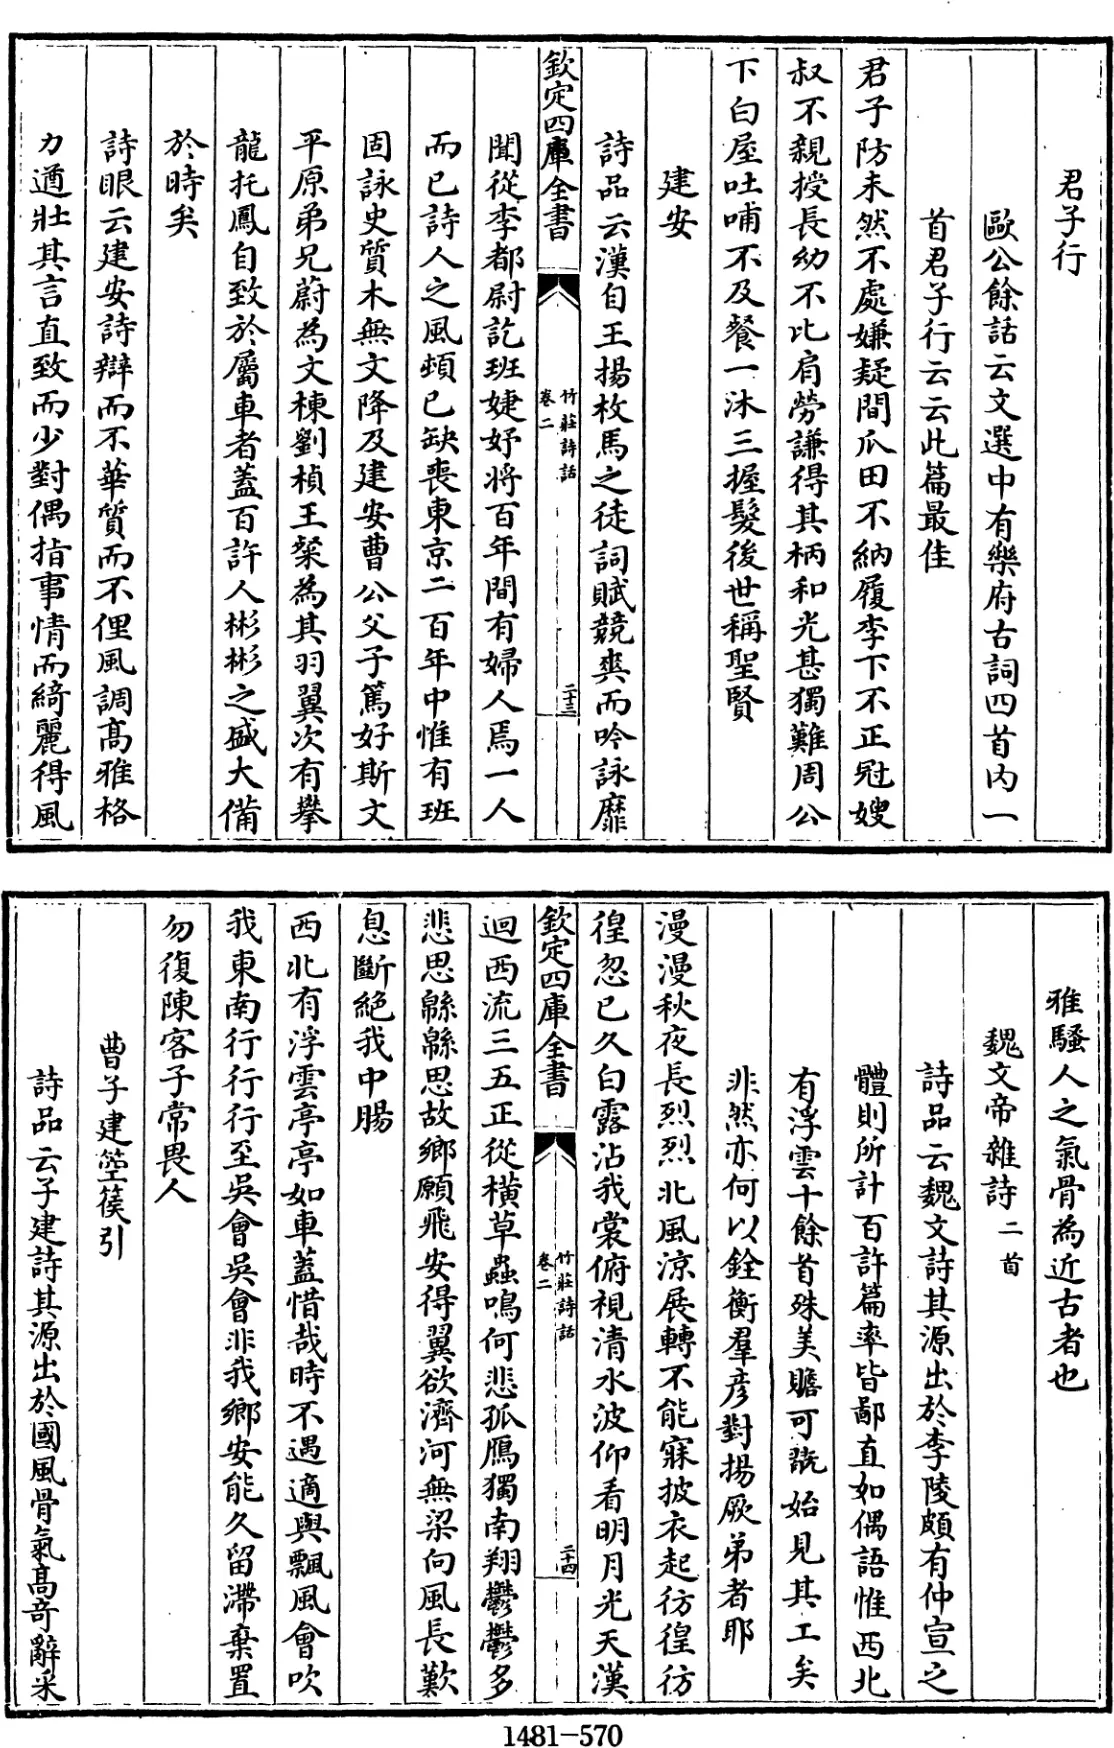 君子行
歐公餘話云文選中有樂府古詞四首内一
首君子行云云此篇最佳
君子防未然不處嫌疑間瓜田不納履李下不正冠嫂
叔不親授長幼不比肩勞謙得其柄和光甚獨難周公
下白屋吐哺不及餐一沐三握髮後世稱聖賢
建安
詩品云漢自王揚枚馬之徒詞賦競爽而吟詠靡
欽定四庫全書
竹莊詩話
卷二
二十三
聞從李都尉訖班婕妤將百年間有婦人焉一人
而已詩人之風頓已缺喪東京二百年中惟有班
固詠史質木無文降及建安曹公父子篤好斯文
平原弟兄蔚為文棟劉楨王粲為其羽翼次有攀
龍托鳳自致於屬車者蓋百許人彬彬之盛大備
於時矣
詩眼云建安詩辯而不華質而不俚風調髙雅格
力遒壯其言直致而少對偶指事情而綺麗得風
雅騷人之氣骨為近古者也
魏文帝雜詩二首
詩品云魏文詩其源出於李陵頗有仲宣之
體則所計百許篇率皆鄙直如偶語惟西北
有浮雲十餘首殊美贍可翫始見其工矣
非然亦何以銓衡羣彦對揚厥弟者耶
漫漫秋夜長烈烈北風涼展轉不能寐披衣起彷徨彷
徨忽已久白露沾我裳俯視清水波仰看明月光天漢
欽定四庫全書
竹莊詩話
卷二
二十四
迴西流三五正從横草蟲鳴何悲孤鴈獨南翔鬱鬱多
悲思緜緜思故鄉願飛安得翼欲濟河無梁向風長歎
息斷絶我中腸
西北有浮雲亭亭如車蓋惜哉時不遇適與飄風會吹
我東南行行行至吳會吳會非我鄉安能久留滯棄置
勿復陳客子常畏人
曹子建箜篌引
詩品云子建詩其源出於國風骨氣髙奇辭采
1481-570